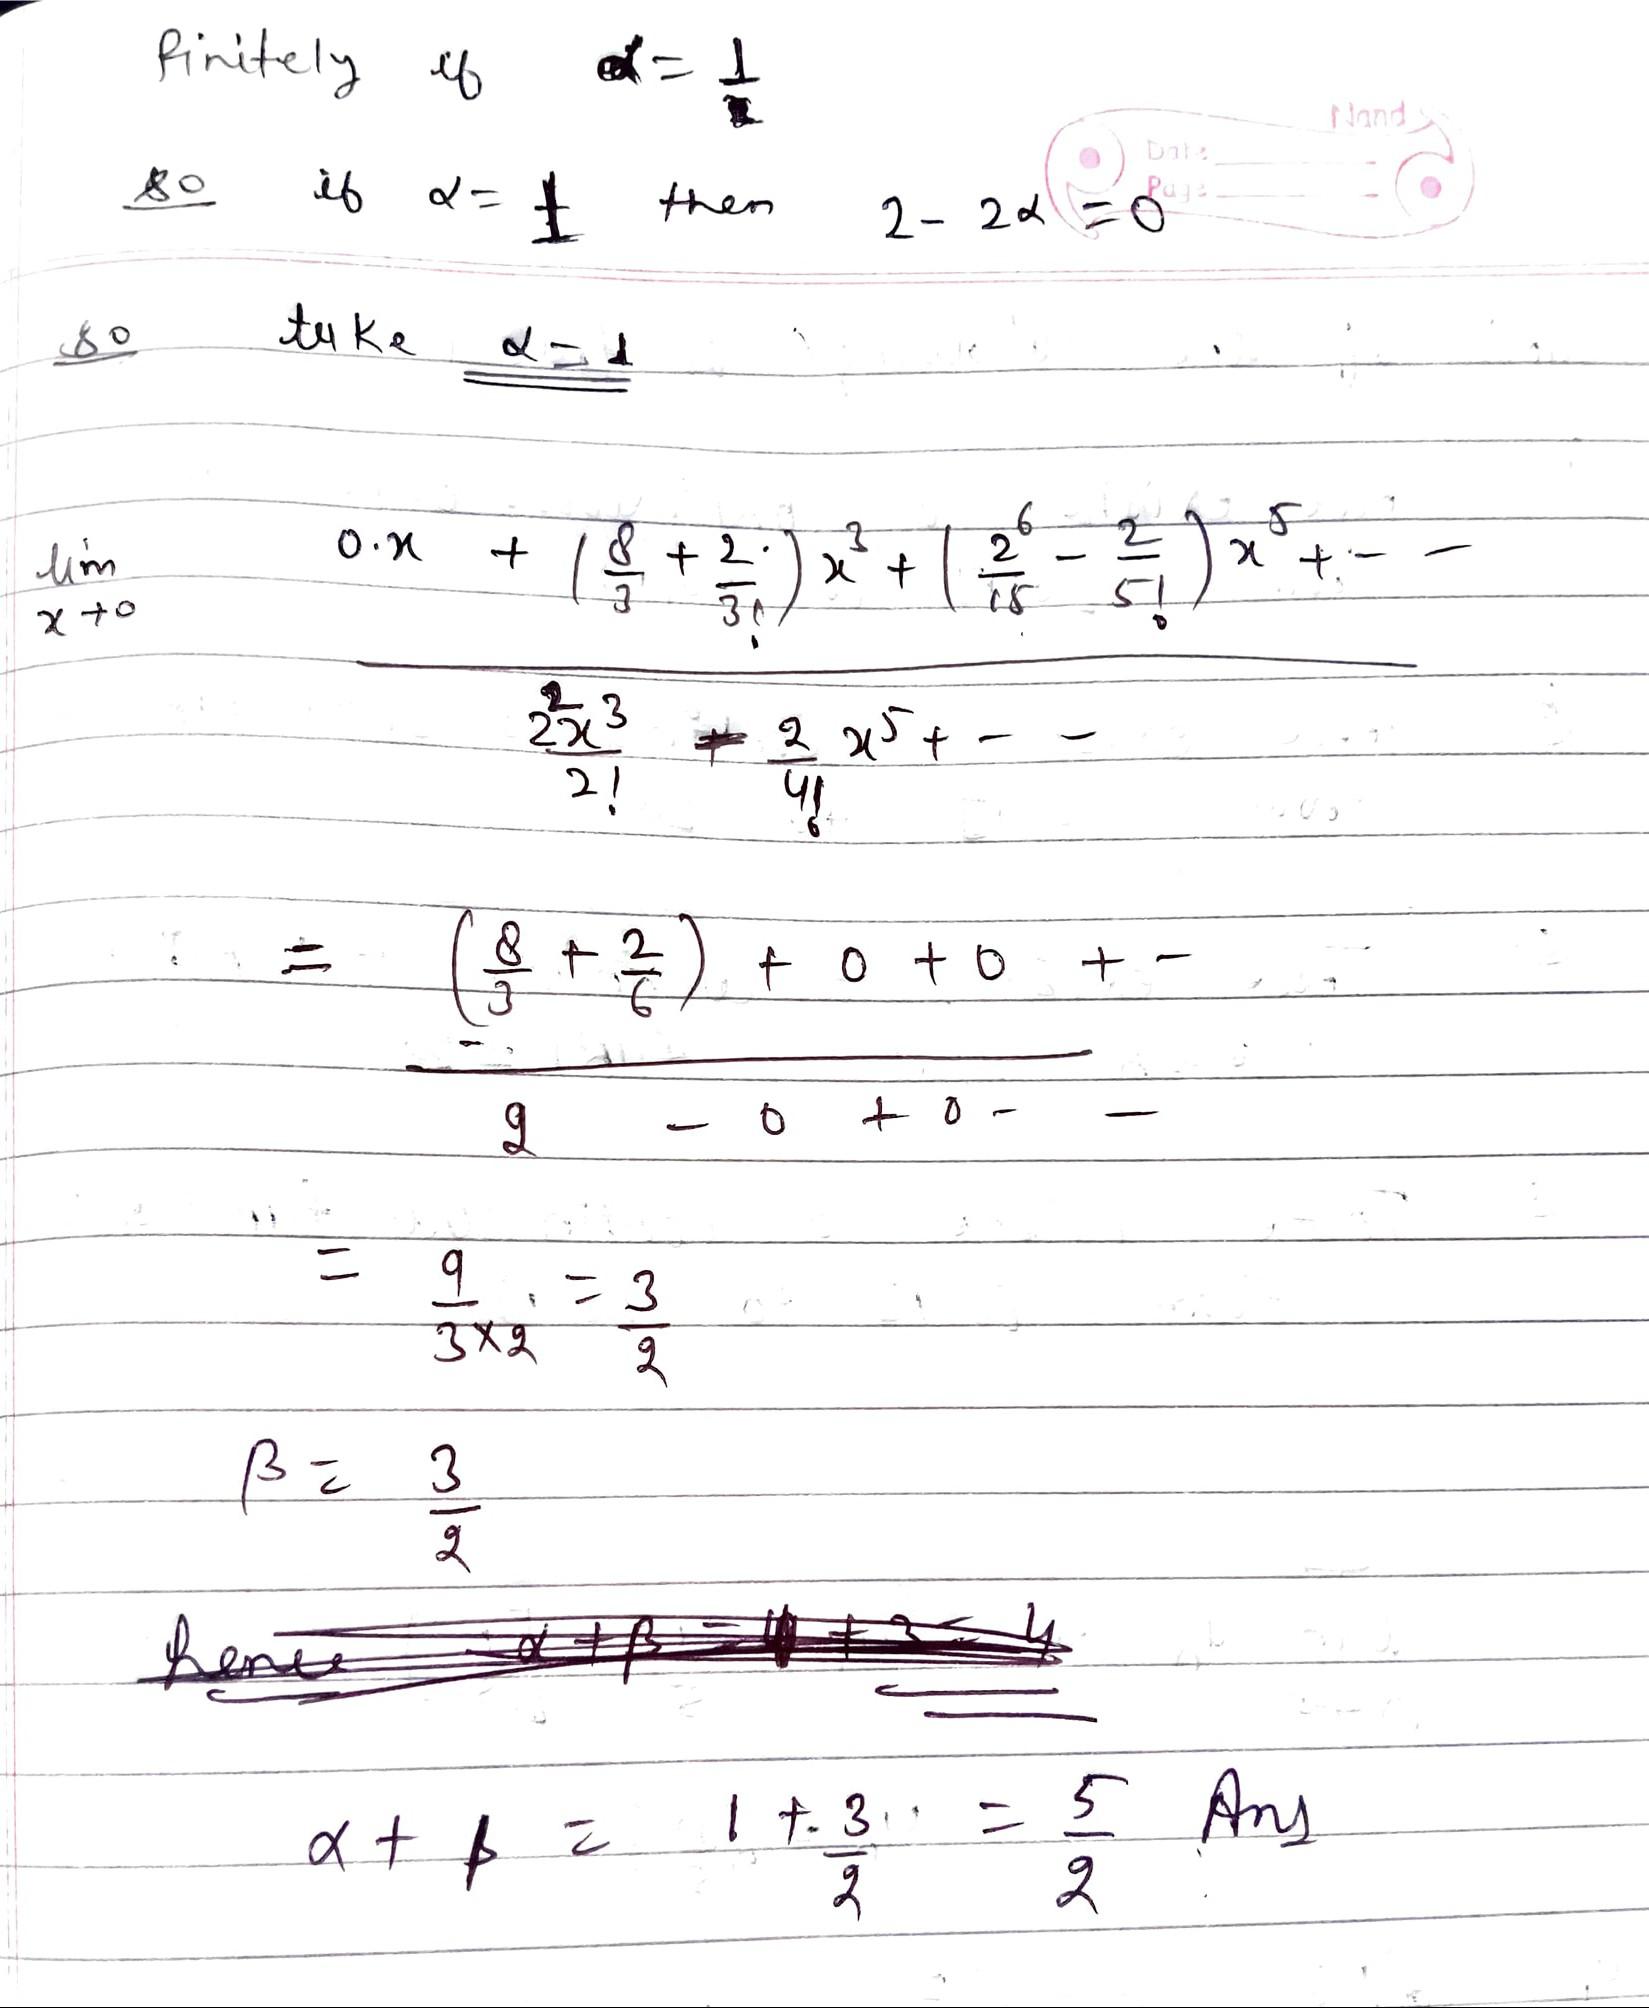 finitely if α = 1
Nand
Date
Page
so if α = 1 then 2 - 2α = 0
so take α = 1
lim x→0 0.x + (8/3 + 2/3!) x³ + (2⁶/15 - 2/5!) x⁵ + - -
2²x³/2! - 2/4! x⁵ + - -
= (8/3 + 2/6) + 0 + 0 + -
2 - 0 + 0 - -
= 9/3×2 = 3/2
β = 3/2
hence α + β = 1 + 3 = 4
α + β = 1 + 3/2 = 5/2 Ans